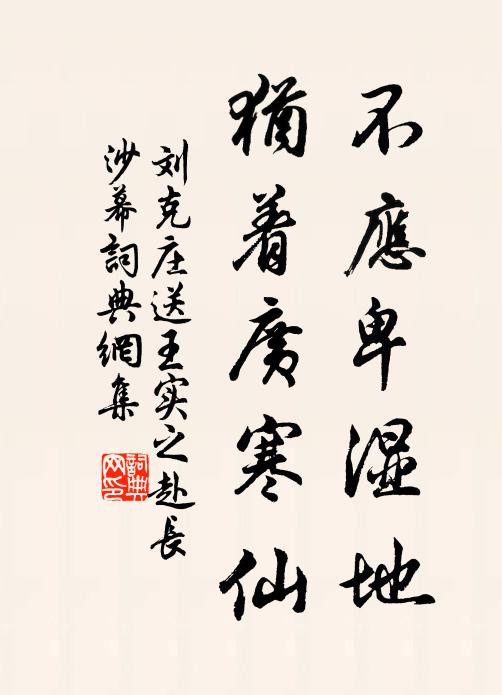 不應卑湿地
猶着廣寒仙
刘克庄送王实之赴長
沙幕詞典網集
詞典网印